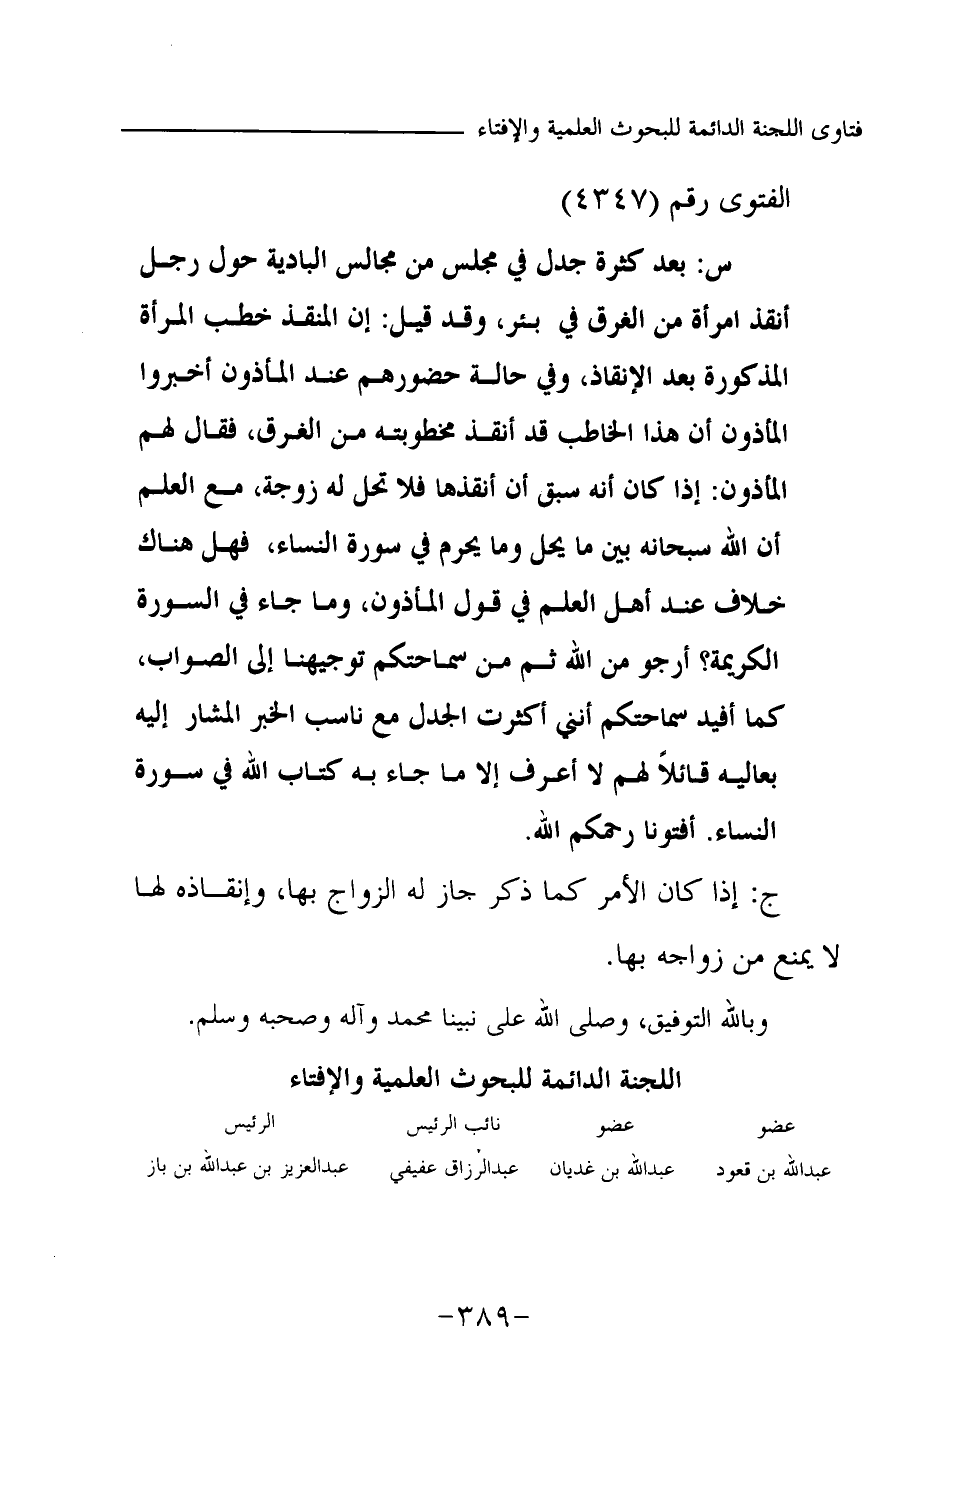 فتاوى اللجنة الدائمة للبحوث العلمية والإفتاء
الفتوى رقم (٤٣٤٧)
س: بعد كثرة جدل في مجلس من مجالس البادية حول رجل
أنقذ امرأة من الغرق في بئر، وقد قيل: إن المنقذ خطب المرأة
المذكورة بعد الإنقاذ، وفي حالة حضورهم عند المأذون أخبروا
المأذون أن هذا الخاطب قد أنقذ مخطوبته من الغرق، فقال لهم
المأذون: إذا كان أنه سبق أن أنقذها فلا تحل له زوجة، مع العلم
أن الله سبحانه بين ما يحل وما يحرم في سورة النساء، فهل هناك
خلاف عند أهل العلم في قول المأذون، وما جاء في السورة
الكريمة؟ أرجو من الله ثم من سماحتكم توجيهنا إلى الصواب،
كما أفيد سماحتكم أنني أكثرت الجدل مع ناسب الخبر المشار إليه
بعاليه قائلاً لهم لا أعرف إلا ما جاء به كتاب الله في سورة
النساء. أفتونا رحمكم الله.
ج: إذا كان الأمر كما ذكر جاز له الزواج بها، وإنقاذه لها
لا يمنع من زواجه بها.
وبالله التوفيق، وصلى الله على نبينا محمد وآله وصحبه وسلم.
اللجنة الدائمة للبحوث العلمية والإفتاء
عضو عضو نائب الرئيس الرئيس
عبدالله بن قعود عبدالله بن غديان عبدالرزاق عفيفي عبدالعزيز بن عبدالله بن باز
-٣٨٩-